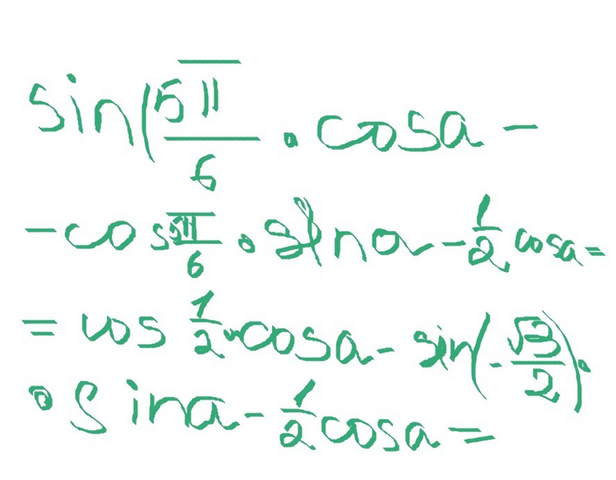 sin(5π/6 · cosa -
-cos 5π/6 · sina - 1/2 cosa =
= cos 1/2 · cosa - sin(-√3/2) ·
· sina - 1/2 cosa =